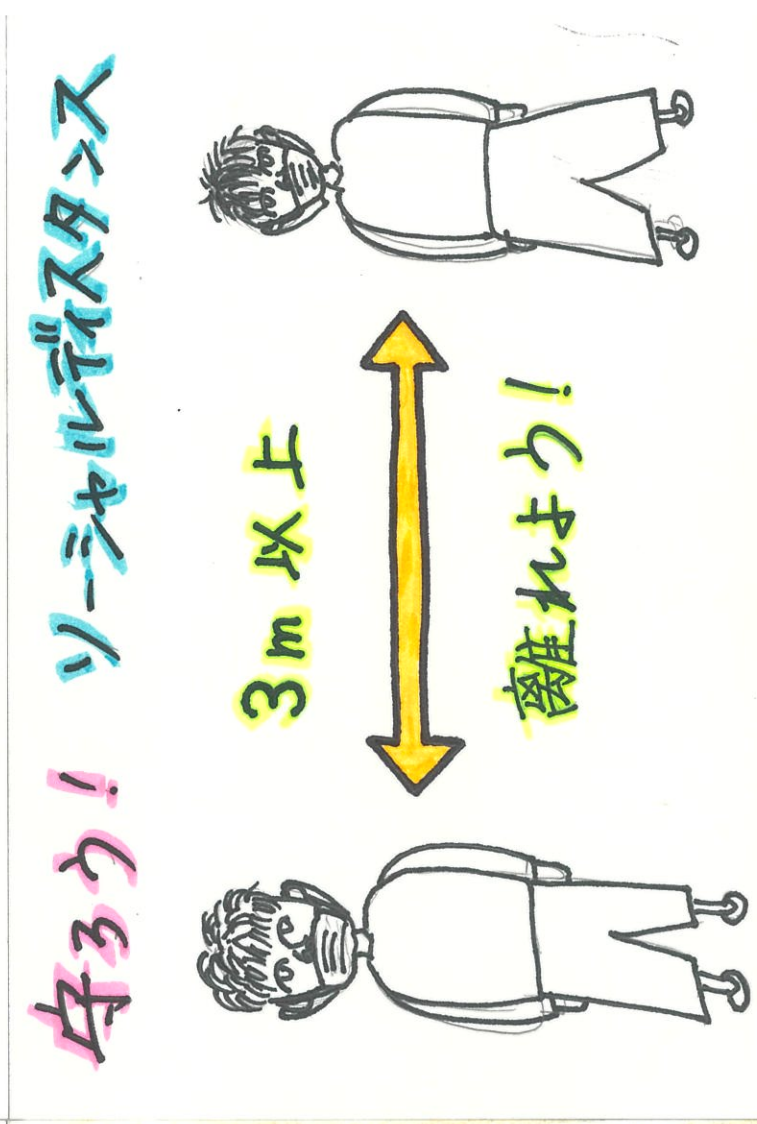 守ろう！ソーシャルディスタンス
3m以上
離れよう！